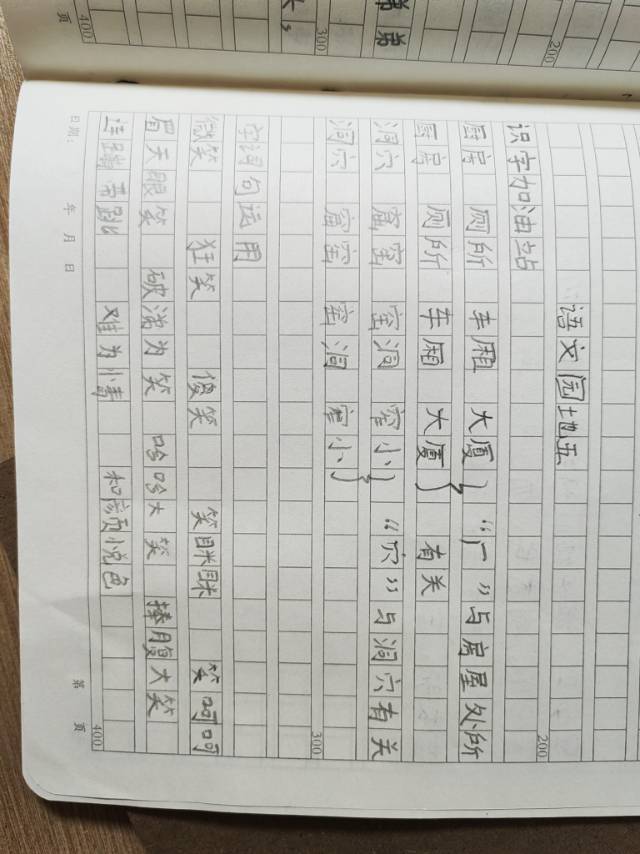 弟弟
200
300
400
页
语文园地五
识字加油站
厨房 厕所 车厢 大厦 } “厂”与房屋处所
厨房 厕所 车厢 大厦 } 有关
洞穴 窟窿 窑洞 窄小 } “穴”与洞穴有关
洞穴 窟窿 窑洞 窄小 }
字词句运用
微笑 狂笑 傻笑 笑眯眯 笑呵呵
眉天眼笑 破涕为笑 哈哈大笑 捧腹大笑
连蹦带跳 难为小青 和颜悦色
200
300
400
日期： 年 月 日
第 页